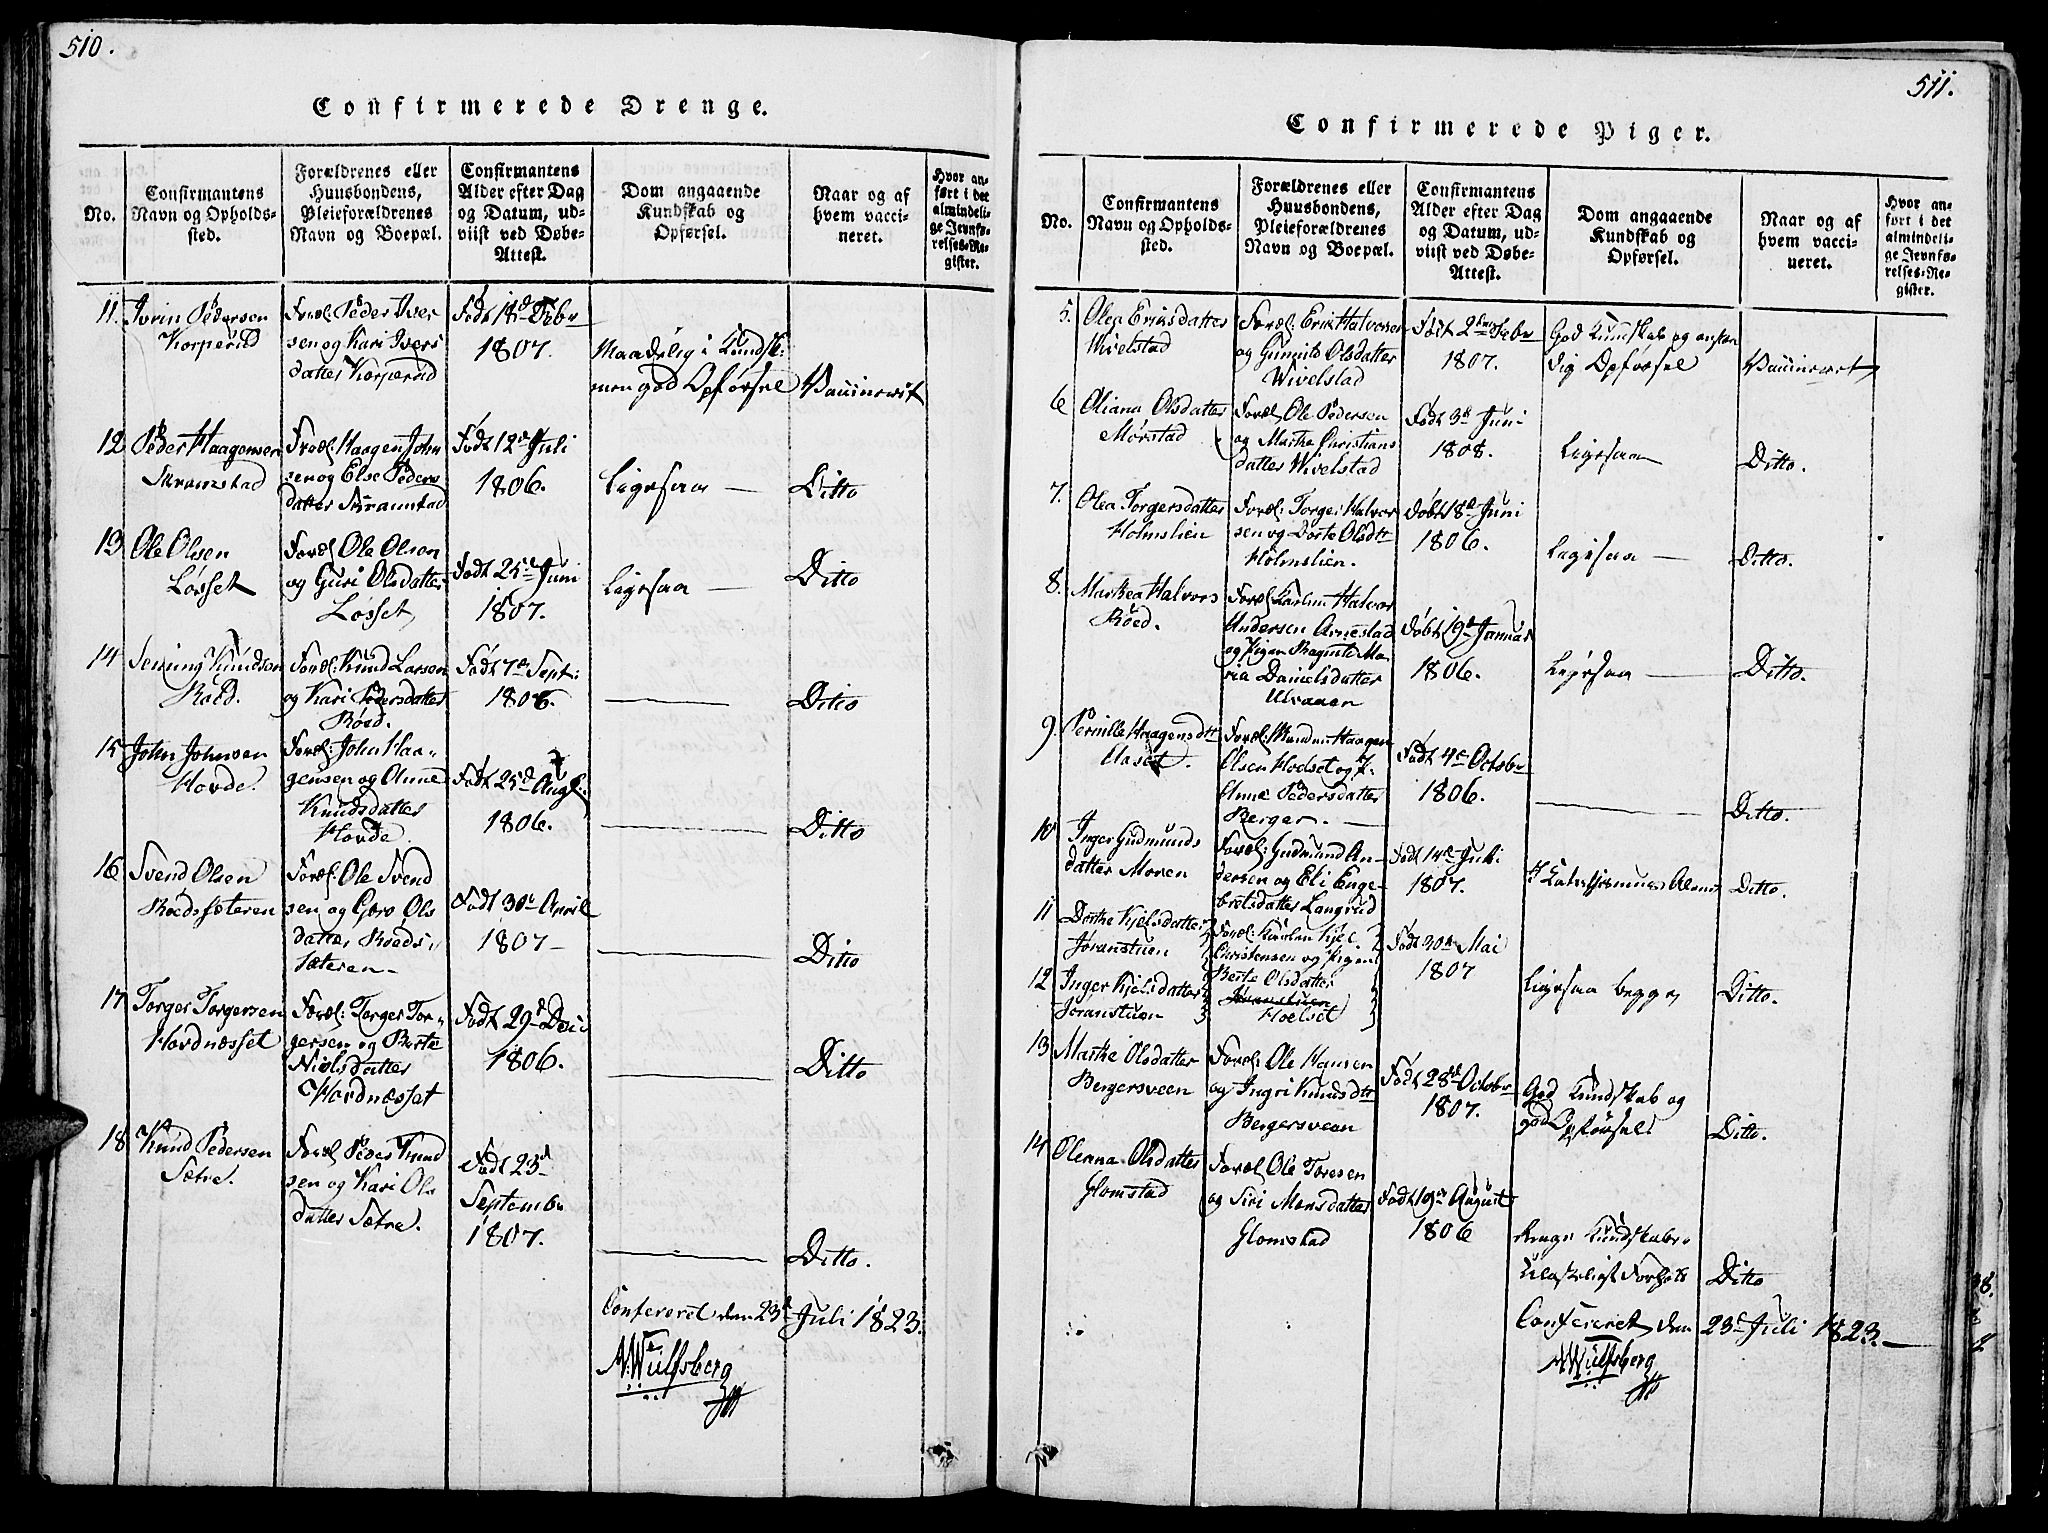 510.
Confirmerede Drenge.
No.
Confirmantens
Navn og Opholds-
sted.
Forældrenes eller
Huusbondens,
Pleieforældrenes
Navn og Boepæl.
Confirmantens
Alder efter Dag
og Datum, ud-
viist ved Døbe-
Attest.
Dom angaaende
Kundskab og
Opførsel.
Naar og af
hvem vacci-
neret.
Hvor an-
ført i det
almindeli-
ge Jevnfø-
relses-Re-
gister.
11. Iverin Pedersen
Korperud
Foræl: Peder Iver
sen og Kari Ivers
datter Korperud
Født 18d Febr
1807.
Maadelig i Kundsk:
men god Opførsel
Vaccineret
12 Peder Haagensen
Skramstad
Foræl: Haagen John
sen og Else Peders
datter Skramstad
Født 12te Juli
1806.
Ligesaa —
Ditto
13 Ole Olsen
Løsset
Foræl Ole Olsen
og Guri Olsdatter
Løsset
Født 25de Juni
1807.
Ligesaa —
Ditto
14 Knudsen
Roed.
Foræl: Knud Larsen
og Kari Pedersdatter
Röed.
Født 7de Sept:
1806.
—
Ditto
15 John Johnsen
Hovde.
Foræl: John Haa-
gensen og Anne
Knudsdatter
Hovde.
Født 25d Aug:
1806.
—
Ditto
16 Svend Olsen
Roedssæteren
Foræl: Ole Svend
sen og Goro Ols
datter Roeds-
sæteren—
Født 30te April
1807—
—
Ditto
17 Torger Torgersen
Hovdnæsset
Foræl: Torger Tor-
gersen og Berte
Nielsdatter
Hovdnæsset
Født 29d Deci
1806.
—
Ditto
18 Knud Pedersen
Sætre.
Foræl Peder Knud
sen og Kari Ols
datter Sætre.
Født 23d
Septembr
1807.
—
Ditto.
Confereret den 23d Juli 1823.
A Wulfsberg
511.
Confirmerede Piger.
No.
Confirmantens
Navn og Opholds-
sted.
Forældrenes eller
Huusbondens,
Pleieforældrenes
Navn og Boepæl.
Confirmantens
Alder efter Dag
og Datum, ud-
viist ved Døbe-
Attest.
Dom angaaende
Kundskab og
Opførsel.
Naar og af
hvem vacci-
neret.
Hvor an-
ført i det
almindeli-
ge Jevnfø-
relses-Re-
gister.
5. Olea Eriksdatter
Wivelstad
Foræl: Erik Halvorsen
og Gunnild Olsdatter
Wivelstad
Født 2den Febr
1807.
God Kundskab og anstæn
dig Opførsel
Vaccineret
6 Oliana Olsdatter
Mørstad
Foræl Ole Pedersen
og Marthe Christians
datter Wivelstad
Født 3de Juni
1808.
Ligesaa
Ditto.
7. Olea Torgersdatter
Holmslien
Foræl: Torger Halvor
sen og Dorte Olsdtt
Holmslien.
Døbt 18d Juni
1806.
Ligesaa —
Ditto.
8. Marthea Halvors
Röed.
Foræl: Karlen Halvor
Andersen Arnestad
og Pigen Ragnild Ma
ria Danielsdatter
Ulvaaen
Døbt 19d Januar
1806.
Ligesaa —
Ditto.
9. Pernille Haagensdtt
Aaset.
Haagen
Olsen Hodset og P.
Anne Pedersdatter
Berger. —
Født 4de Octobr
1806.
—
Ditto.
10 Inger Gudmunds
datter Moren
Foræl: Gudmund An-
dersen og Eli Enge-
bretsdatter Langrud
Født 14de Juli
1807.
Ditto.
11 Dorthe Kjelsdatter
Joranstuen
12 Inger Kjelsdatter
Joranstuen
Foræl: Karlen Kjel
Christensen og Pigen
Berte Olsdatter
Joranstuen
Hoelset
Født 20de Mai
1807
Ligesaa begge
Ditto.
13 Marthe Olsdatter
Bergersveen
Foræl: Ole Hansen
og Ingri Knudsdtt
Bergersveen
Født 28de Octobr
1807.
God Kundskab og
god Opførsel
Ditto.
14 Oleana Olsdatter
Glomstad
Foræl Ole Toresen
og Siri Monsdatter
Glomstad
Født 19de August
1806
Ringe Kundskaber
Ditto
Confereret den 23d Juli 1823.—
A Wulfsberg